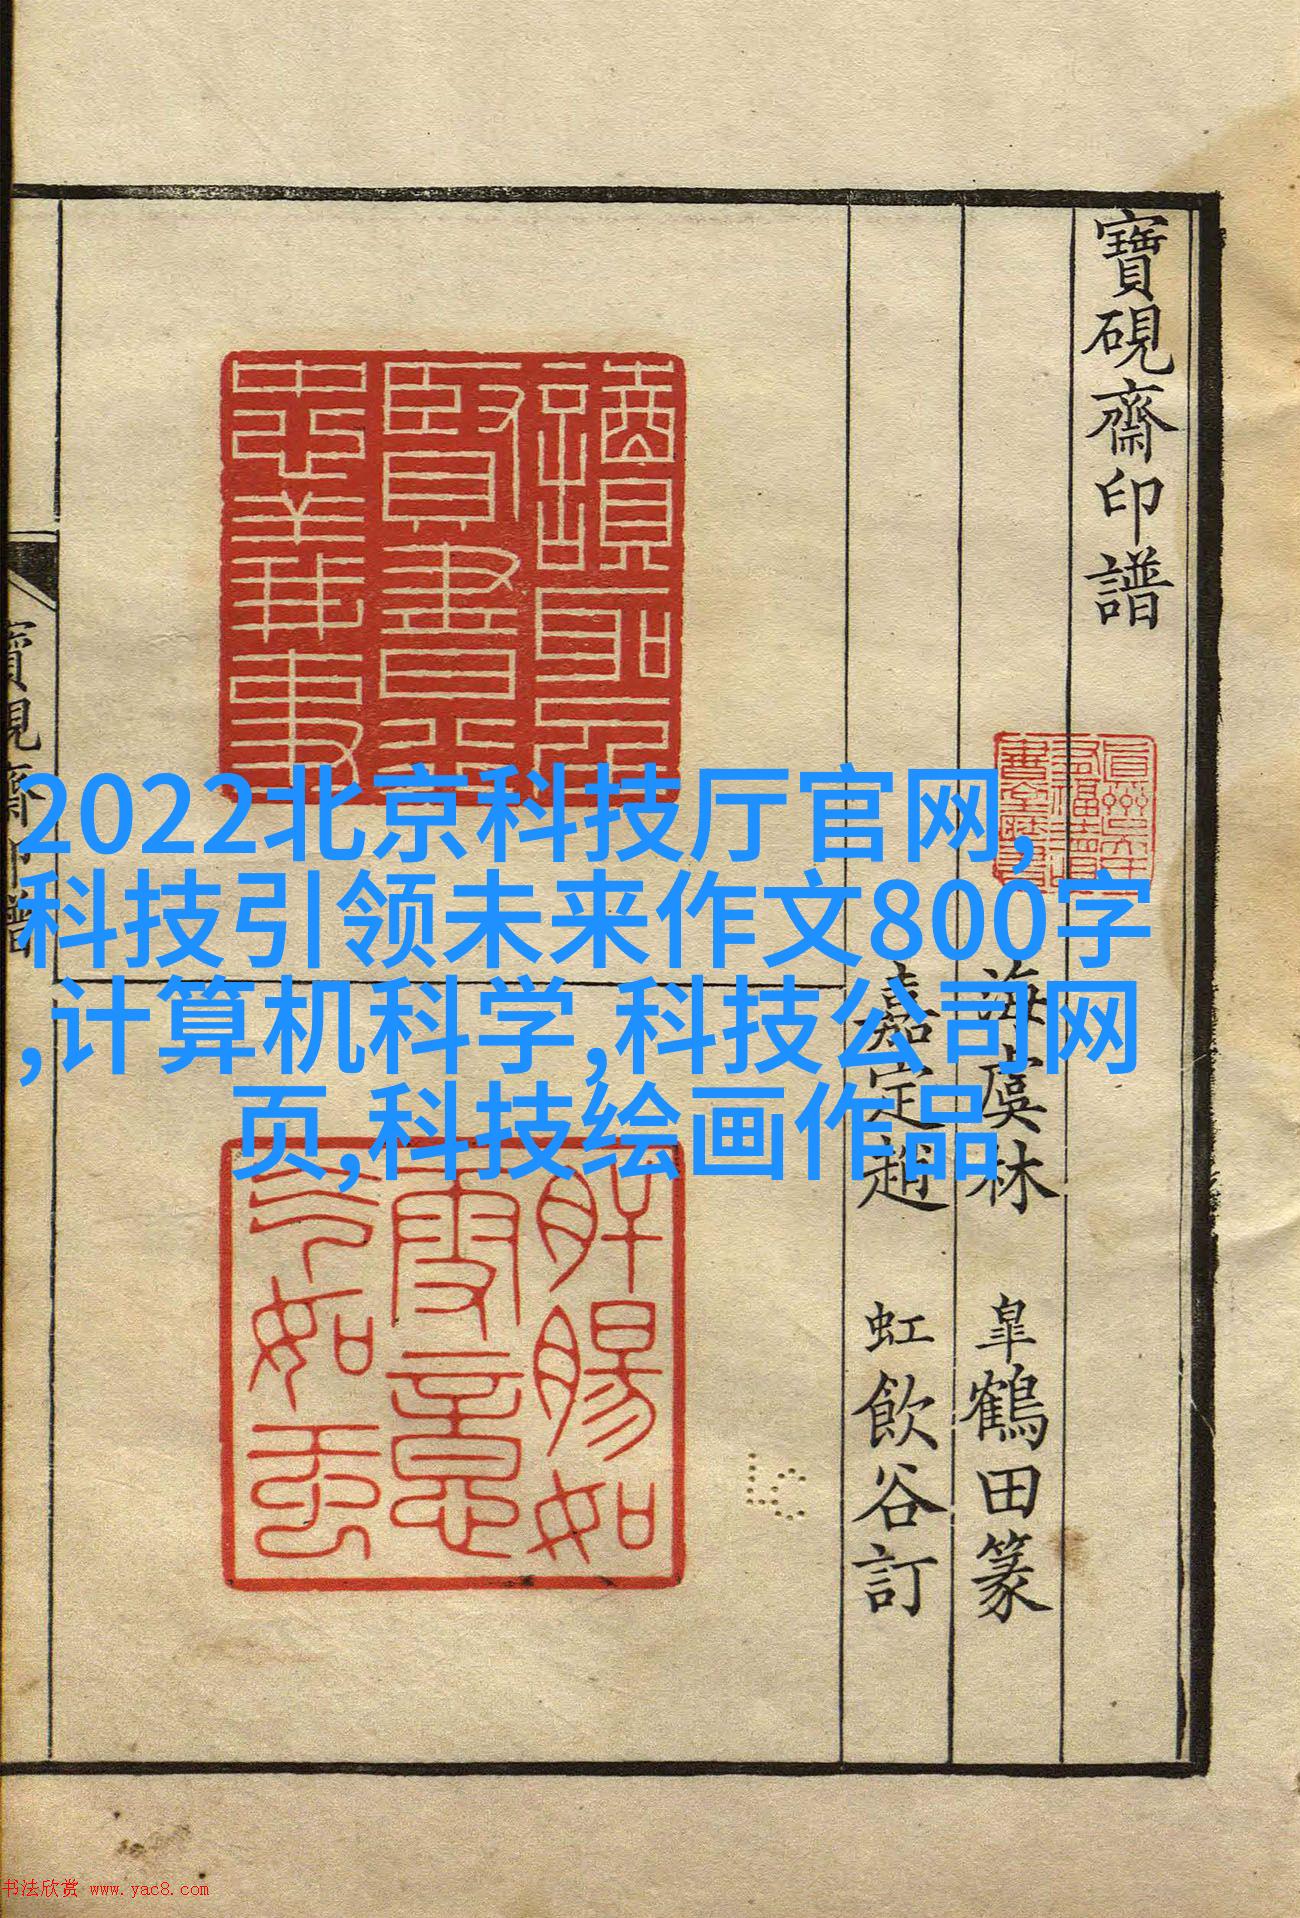 2022北京科技厅官网,
科技引领未来作文800字
,计算机科学,科技公司网
页,科技绘画作品
寶硯齋印譜
海虞林 皐鶴田篆
嘉定趙 虹飲谷訂
肝腸如
雪意
气如雲
LC
书法欣赏 www.yac8.com